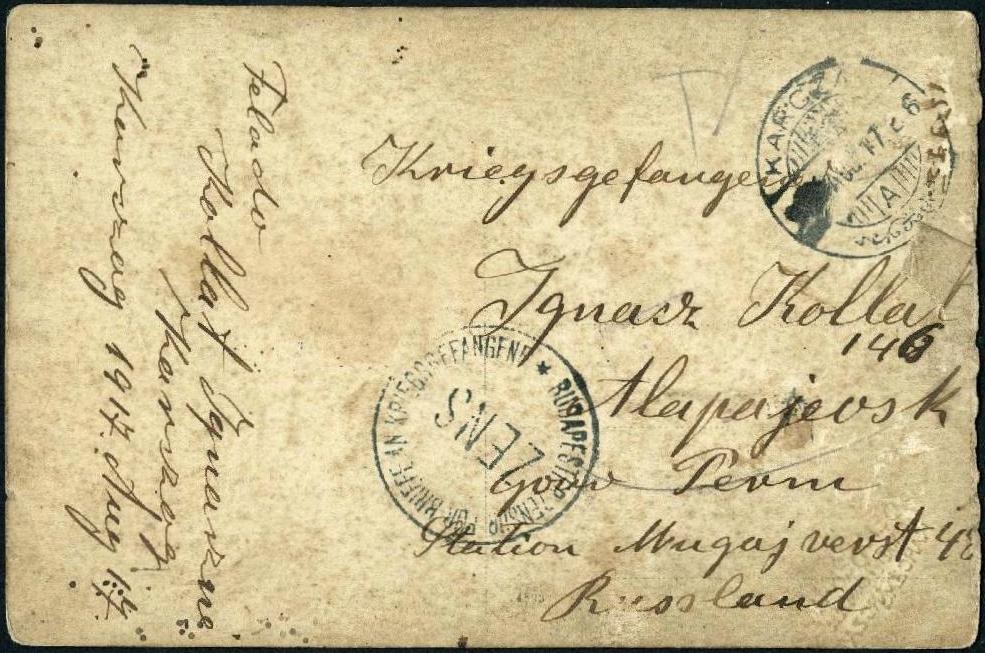 Feladó
Kollat Ignaszne
Karszag
Karszag 1917. Aug 17
Kriegsgefangenen
Ignasz Kollat
146
Alapajevsk
Gouv Perm
Station Mugaj verst 42
Russland
KARCZA
17
6
A
BUDAPESTER ZENSUR FÜR BRIEFE AN KRIEGSGEFANGENE *
ZENS